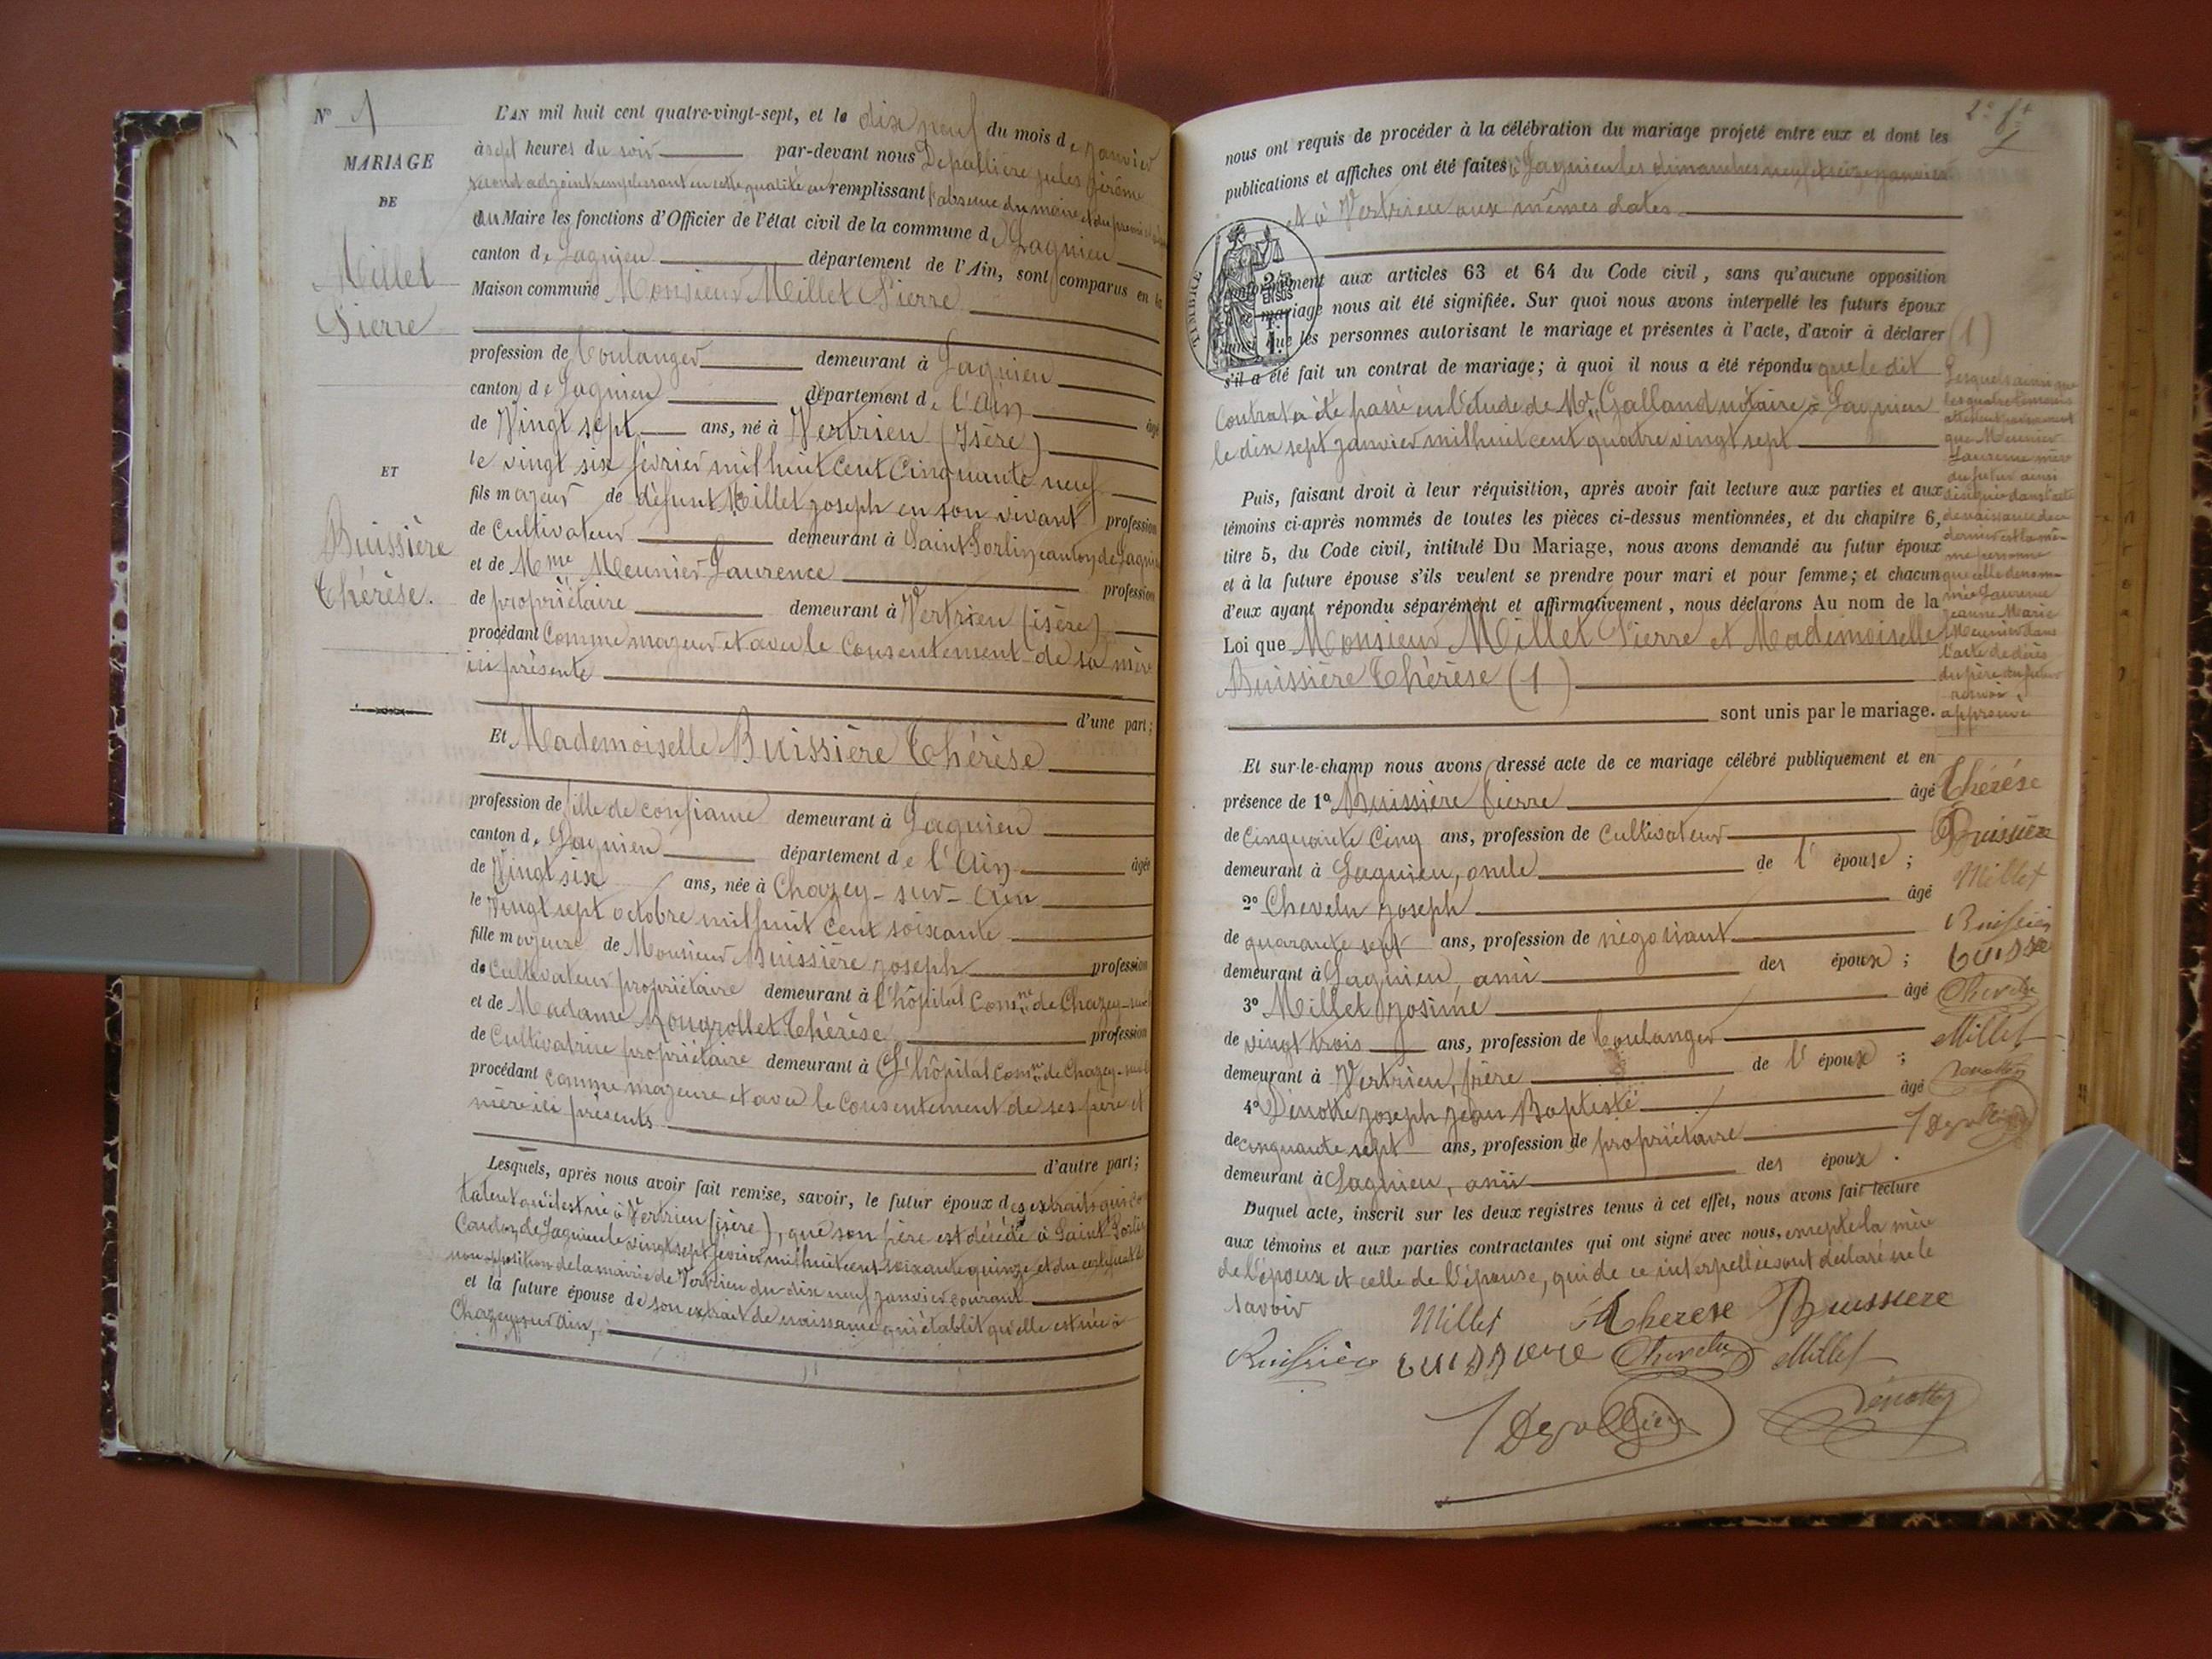 N° 1
MARIAGE
DE
Millet
Pierre
ET
Buissière
Thérèse.
L'AN mil huit cent quatre-vingt-sept, et le dix neuf du mois de janvier
à sept heures du soir par-devant nous Depallière jules jérôme
second adjoint remplissant en cette qualité en remplissant l'absence du maire et du premier
du Maire les fonctions d'Officier de l'état civil de la commune de Lagnieu
canton de Lagnieu département de l'Ain, sont comparus en la
Maison commune Monsieur Millet Pierre
profession de boulanger demeurant à Lagnieu
canton de Lagnieu département de l'Ain âgé
de Vingt sept ans, né à Vertrieu (Isère)
le vingt six février mil huit cent cinquante neuf
fils majeur de défunt Millet joseph en son vivant profession
de Cultivateur demeurant à Saint Sorlin canton de Lagnieu
et de Mme Meunier Laurence profession
de propriétaire demeurant à Vertrieu (isère)
procédant comme majeur et avec le consentement de sa mère
ici présente
d'une part;
Et Mademoiselle Buissière Thérèse
profession de fille de confiance demeurant à Lagnieu
canton de Lagnieu département de l'Ain âgée
de Vingt six ans, née à Chazey-sur-Ain
le Vingt sept octobre mil huit cent soixante
fille majeure de Monsieur Buissière joseph profession
de Cultivateur propriétaire demeurant à l'hôpital Comne de Chazey-sur
et de Madame Thérèse profession
de Cultivatrice propriétaire demeurant à L'hôpital Comne de Chazey-sur
procédant comme majeure et avec le Consentement de ses père et
mère ici présents
d'autre part;
Lesquels, après nous avoir fait remise, savoir, le futur époux des extraits qui cons
tatent qu'il est né à Vertrieu (isère), que son père est décédé à Saint Sorlin
Canton de Lagnieu le vingt sept février mil huit cent soixante quinze et du certificat de
non opposition de la mairie de Vertrieu du dix neuf janvier courant
et la future épouse de son extrait de naissance qui établit qu'elle est née à
Chazey sur Ain,
nous ont requis de procéder à la célébration du mariage projeté entre eux et dont les
publications et affiches ont été faites à Lagnieu les dimanches neuf et seize janvier
et à Vertrieu aux mêmes dates
TIMBRE
conformément aux articles 63 et 64 du Code civil, sans qu'aucune opposition
à ce mariage nous ait été signifiée. Sur quoi nous avons interpellé les futurs époux
ainsi que les personnes autorisant le mariage et présentes à l'acte, d'avoir à déclarer
s'il a été fait un contrat de mariage; à quoi il nous a été répondu que le dit
Contrat a été passé en l'étude de Me Galland notaire à Lagnieu
le dix sept janvier mil huit cent quatre vingt sept
Puis, faisant droit à leur réquisition, après avoir fait lecture aux parties et aux
témoins ci-après nommés de toutes les pièces ci-dessus mentionnées, et du chapitre 6,
titre 5, du Code civil, intitulé Du Mariage, nous avons demandé au futur époux
et à la future épouse s'ils veulent se prendre pour mari et pour femme; et chacun
d'eux ayant répondu séparément et affirmativement, nous déclarons Au nom de la
Loi que Monsieur Millet Pierre et Mademoiselle
Buissière Thérèse (1)
sont unis par le mariage.
Et sur-le-champ nous avons dressé acte de ce mariage célébré publiquement et en
présence de 1° Buissière Pierre âgé
de Cinquante Cinq ans, profession de Cultivateur
demeurant à Lagnieu, oncle de l'épouse;
2° Chevelu joseph âgé
de quarante sept ans, profession de négociant
demeurant à Lagnieu, ami des époux;
3° Millet Zosime âgé
de vingt trois ans, profession de boulanger
demeurant à Vertrieu, frère de l'époux;
4° joseph jean Baptiste âgé
de cinquante sept ans, profession de propriétaire
demeurant à Lagnieu, ami des époux.
Duquel acte, inscrit sur les deux registres tenus à cet effet, nous avons fait lecture
aux témoins et aux parties contractantes qui ont signé avec nous, excepté la mère
de l'époux et celle de l'épouse, qui de ce interpellées ont déclaré ne le
savoir
Millet Therese Buissiere
Buissière Chevelu Millet
(1)
Lesquels ainsi que
les quatre témoins
attestent
que Meunier
Laurence mère
du futur ainsi
désignée dans l'acte
de naissance de ce
dernier est la mê-
me personne
que celle dénom-
mée Laurence
jeanne Marie
Meunier dans
l'acte de décès
du père du futur
renvoi
approuvé
Thérése
Buissière
Millet
Buissière
Chevelu
Millet